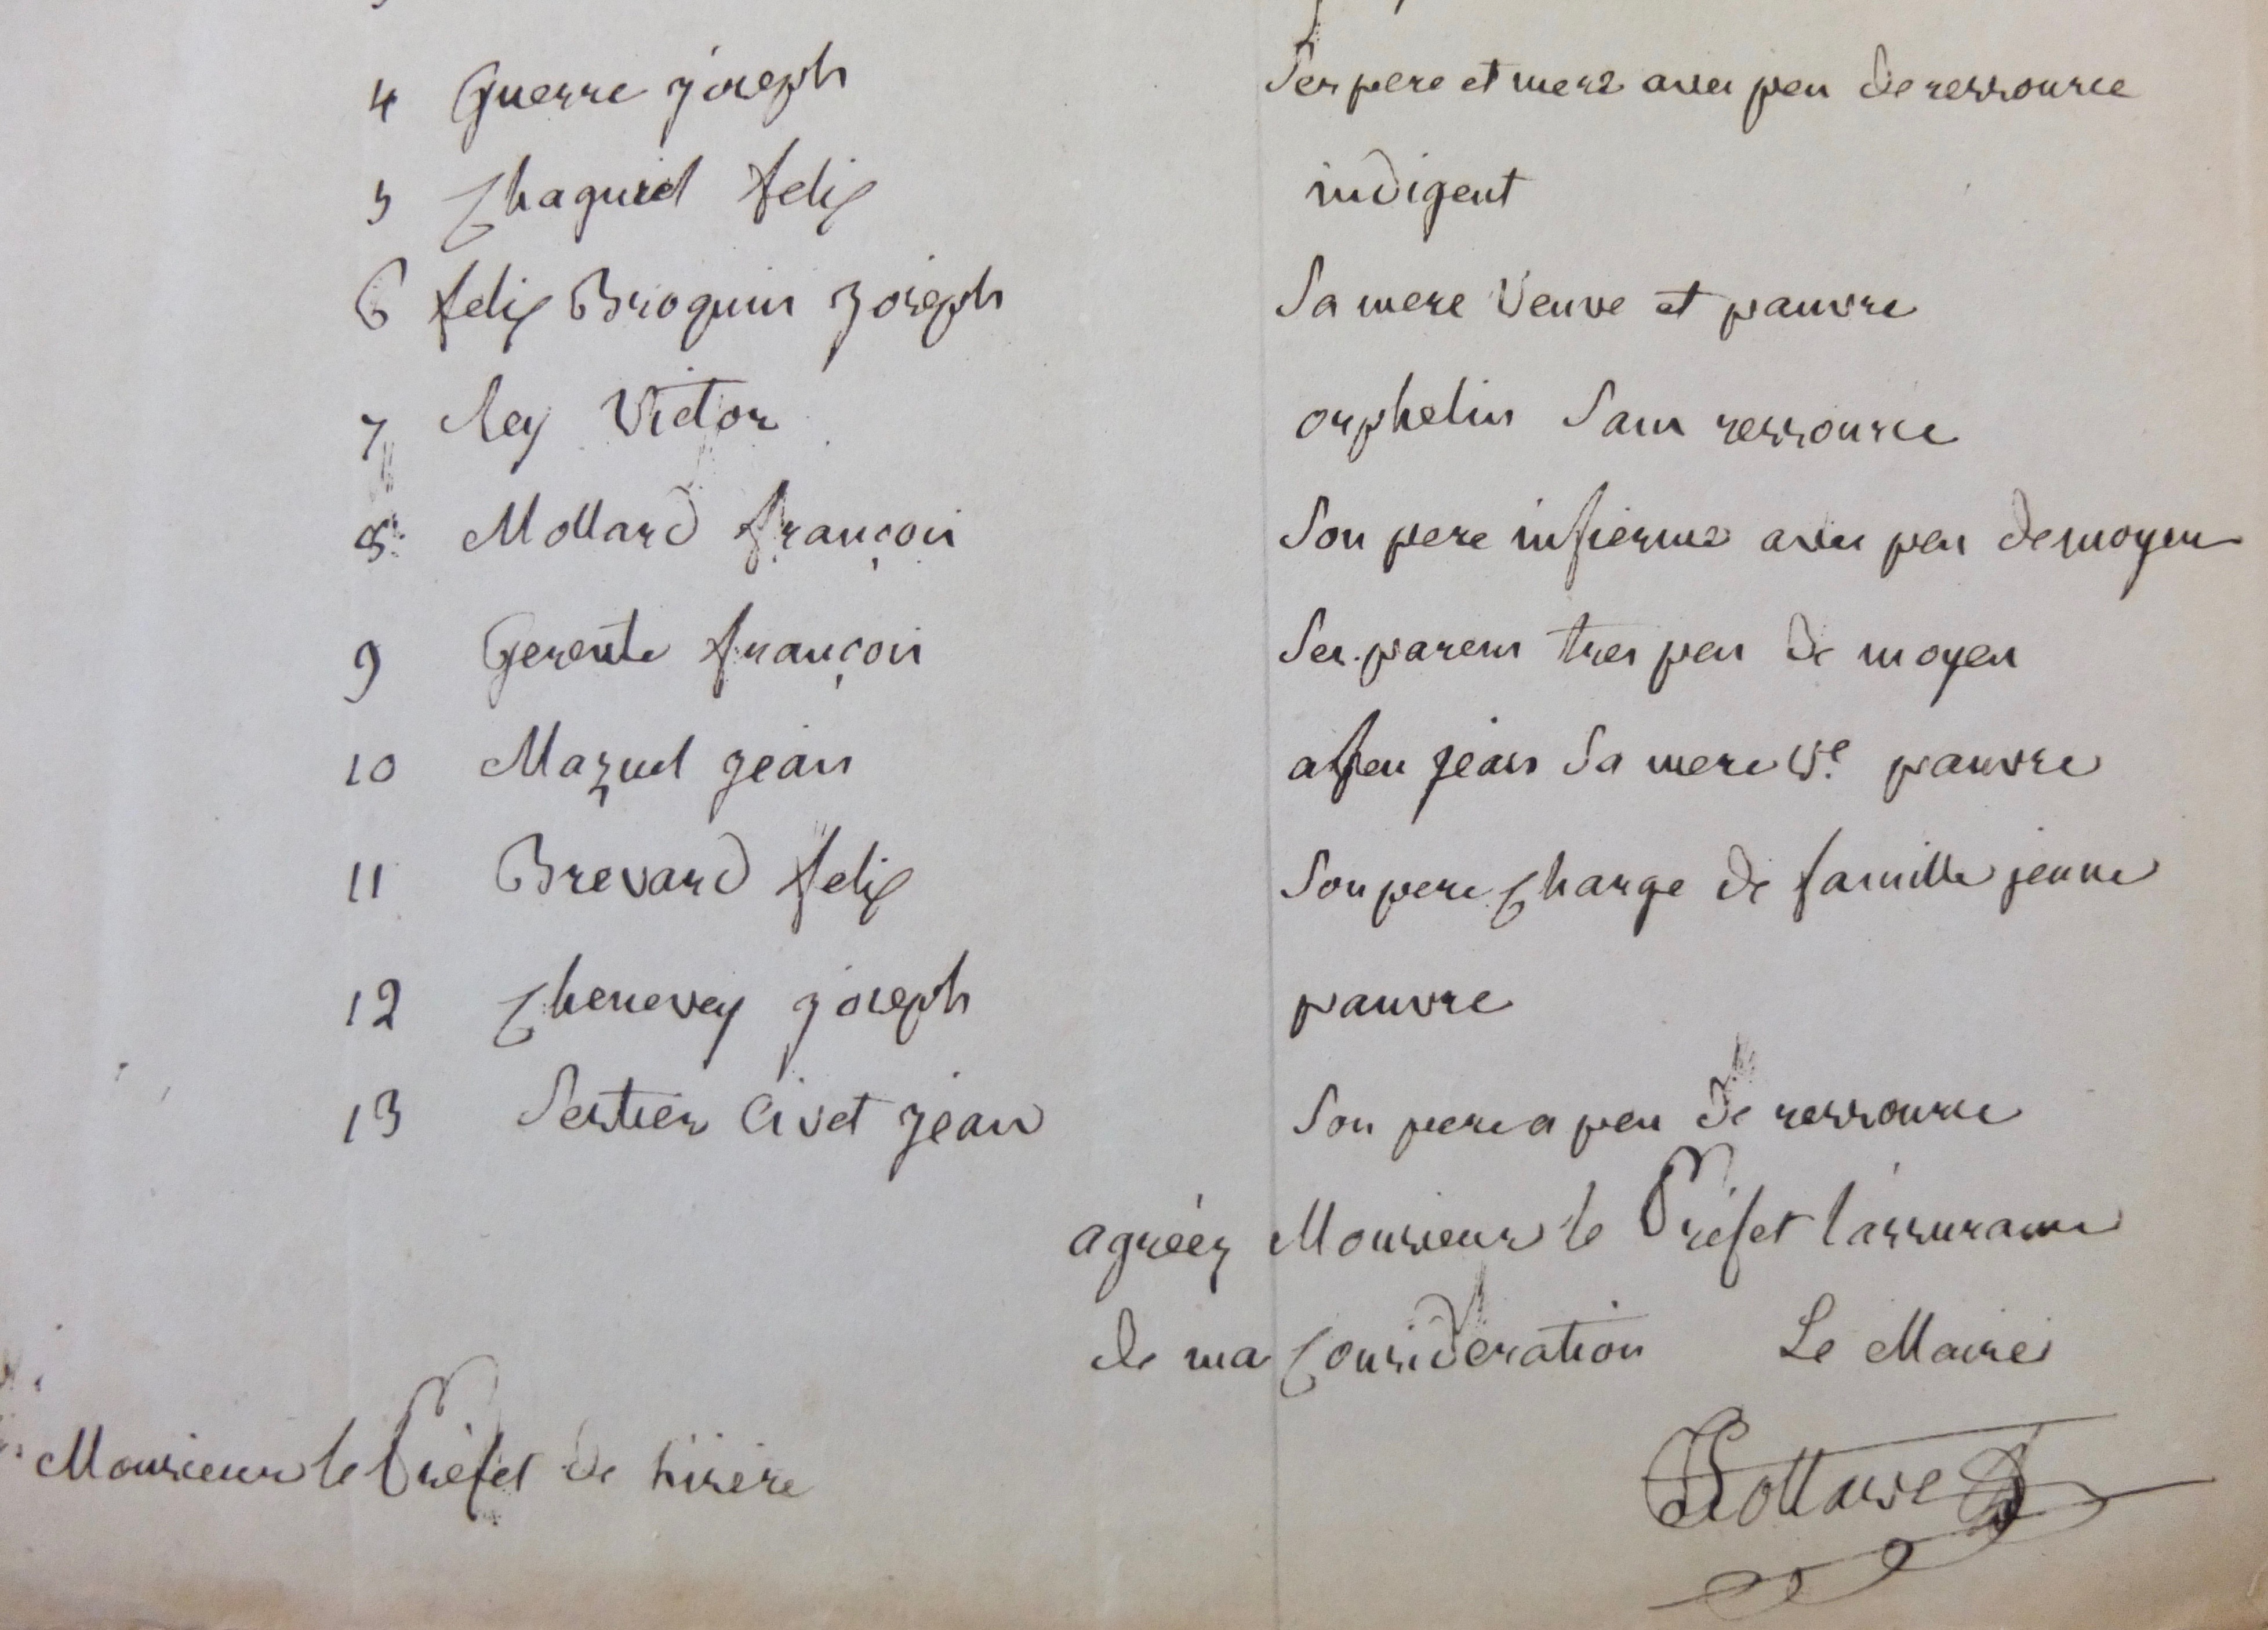 4 Guerre joseph Ses pere et mere avec peu de ressource
5 Chaguid felix indigent
6 felix Broquin Joseph Sa mere Veuve et pauvre
7 Rey Victor orphelin Sans ressource
8 Mollard françois Son pere infierme avec peu de moyen
9 Gerente françois Ses parens tres peu de moyen
10 Mazuel jean a feu jean Sa mere Ve pauvre
11 Brevard felix Son pere Charge de famille jeune
12 Chenevey joseph pauvre
13 Sertier Civet jean Son pere a peu de ressource
agréez Monsieur le Préfet l'assurance
de ma Consideration Le Maire
Monsieur le Préfet de l'isere